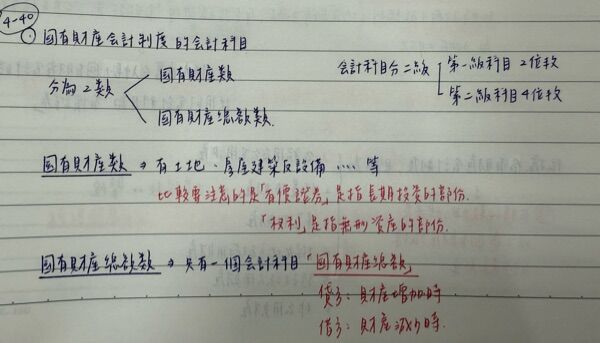 4-40
國有財產会計制度的会計科目
分為2類
國有財產類
國有財產總額類
会計科目分二級
第一級科目 2位数
第二級科目 4位数
國有財產類 → 有土地、房屋建築及設備.....等
比較要注意的是「有價證券」是指長期投資的部份.
「权利」是指無形資產的部份.
國有財產總額類 → 只有一個会計科目「國有財產總額」
貸方: 財產增加時
借方: 財產減少時.